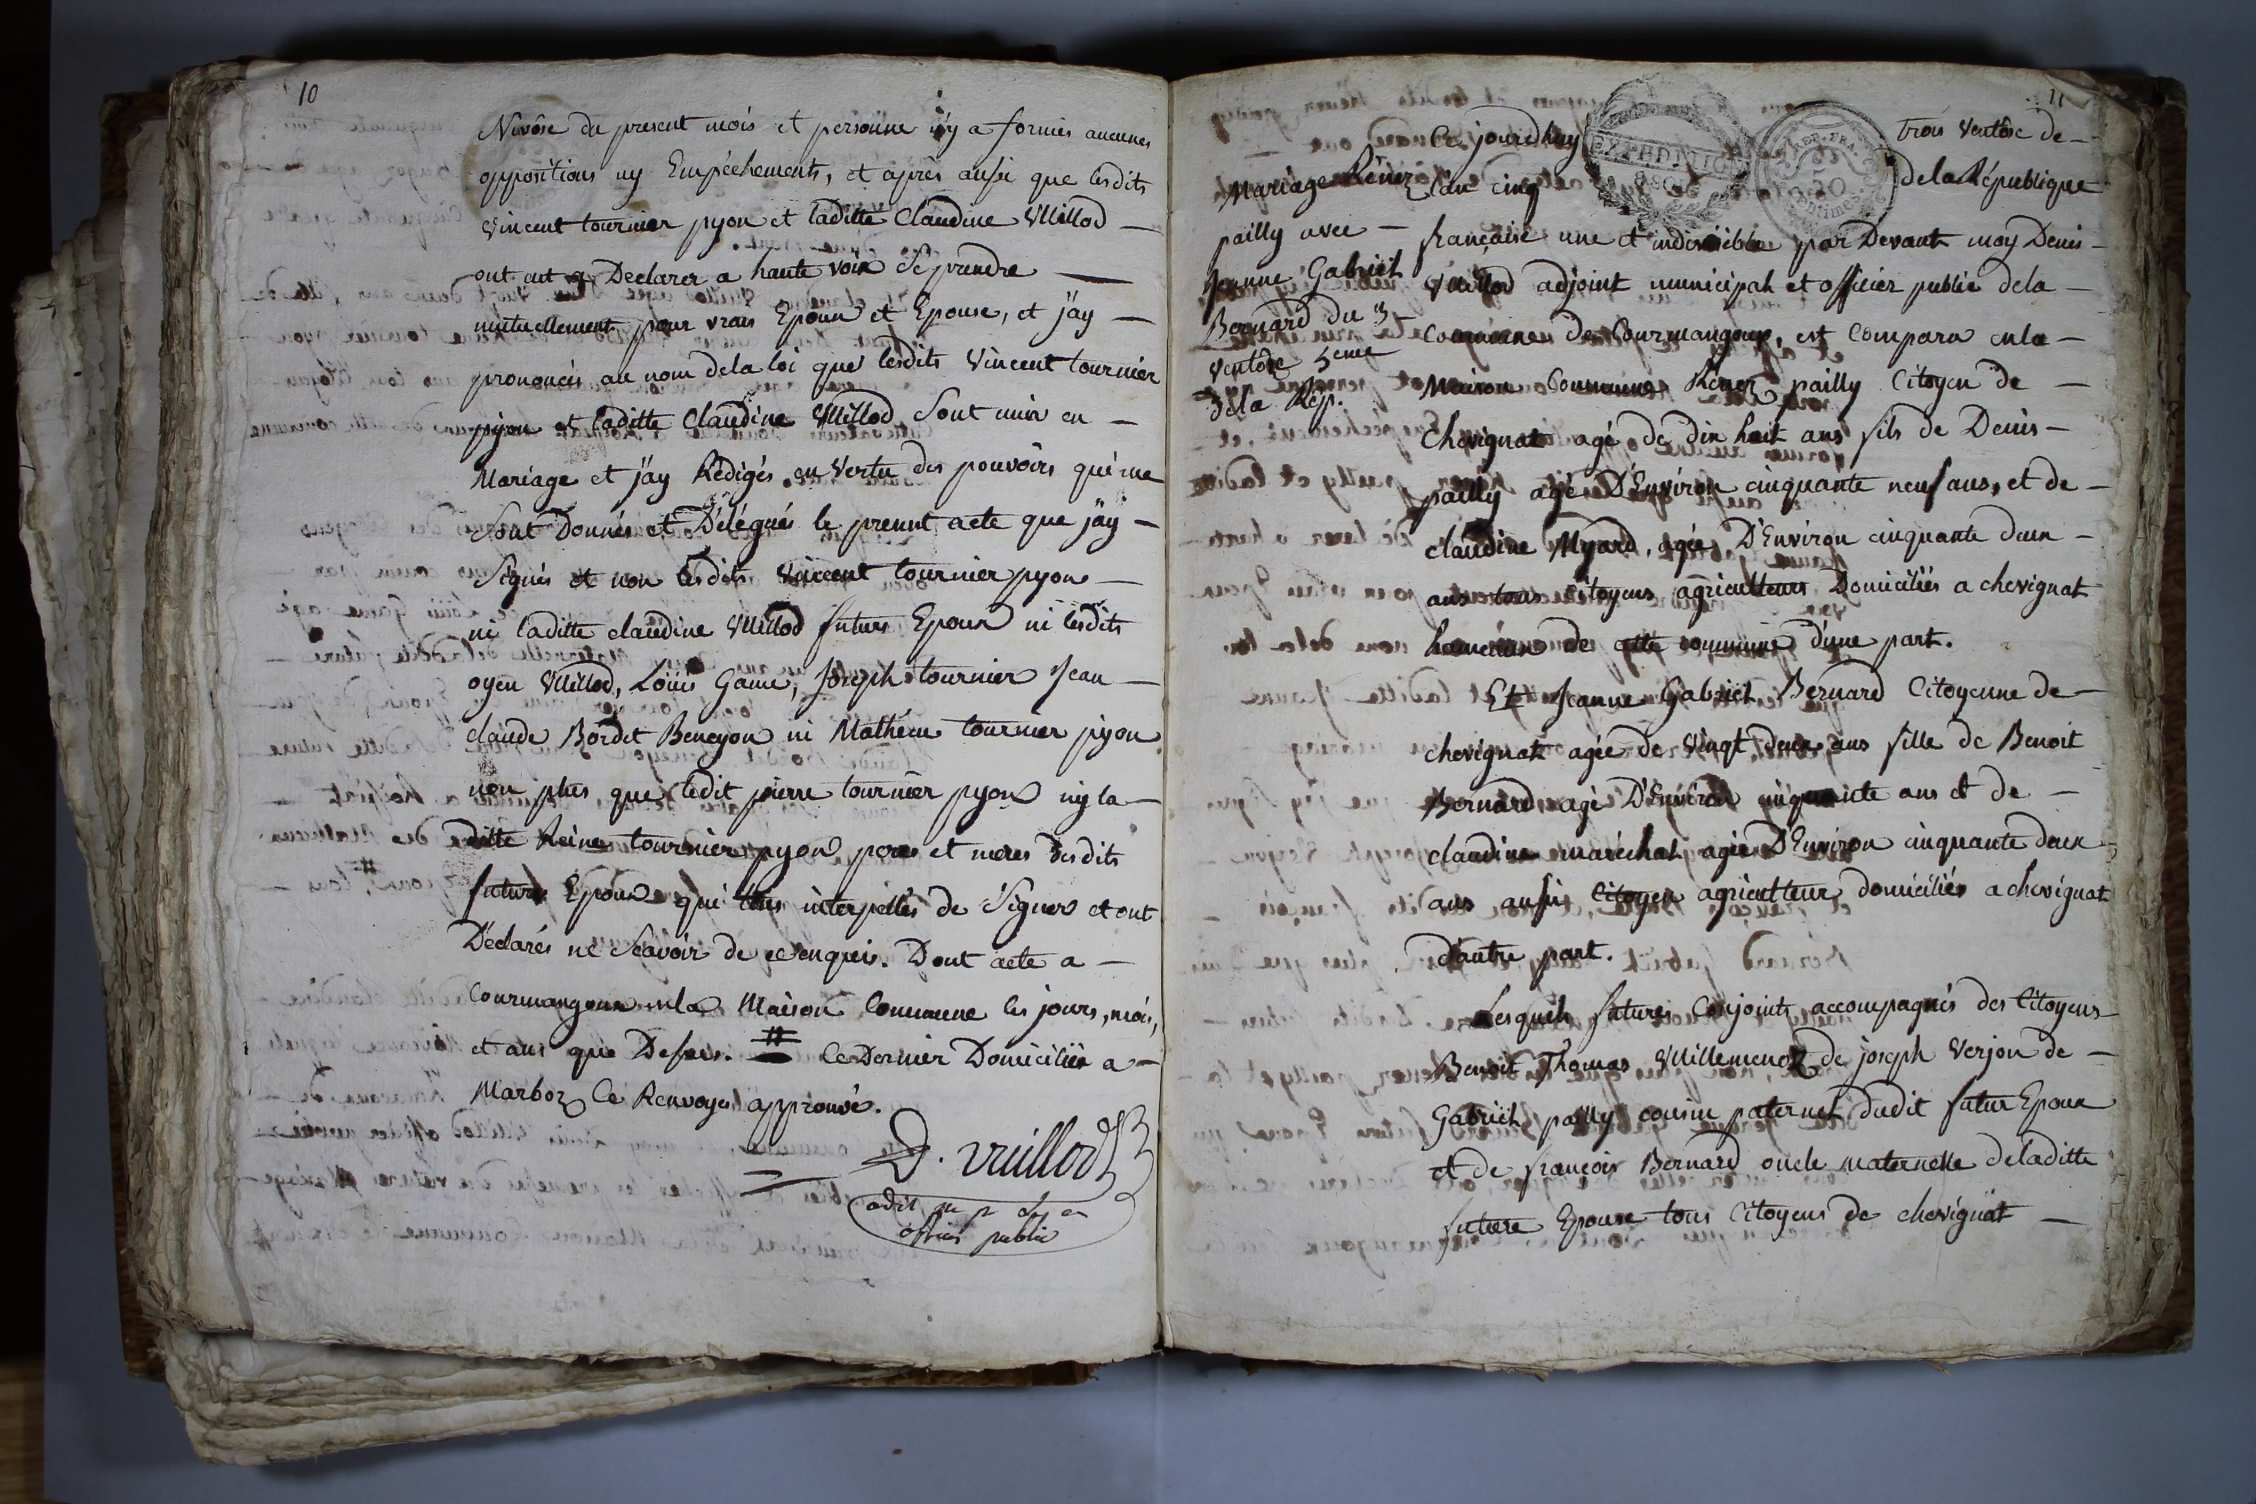 10
Nivôse du present mois et personne n'y a formés aucunes
oppositions ny Empéchements, et aprés aussi que lesdits
vincent tournier pyon et laditte Claudine Vuillod —
ont eut Declarer a haute voix Se prendre —
mutuellement pour vrais Epoux et Epouse, et j'ay —
prononcés au nom dela loi que lesdits Vincent tournier
pyon et laditte Claudine Vuillod Sont unis en —
Mariage et j'ay Rédigés en Vertu des pouvoirs qui me
Sont Donnés et Délégués le presnt acte que j'ay —
Signés et non lesdits vincent tournier pyon —
ni laditte claudine Vuillod futurs Epoux ni lesdits
oyen Vuillod, Loüis Game, Joseph tournier Jean —
claude Bordet Beneyon ni Mathieu tournier pyon
non plus que ledit pierre tournier pyon ny la —
ditte Reine tournier pyon peres et meres desdits
futurs Epoux qui tous interpellés de Signer et ont
Déclarés ne Scavoir de ce enquis. Dont acte a —
Courmangoux enla Maison Commune les jours, mois,
et ans que Dessus. # Ce Dernier Domiciliér a —
Marboz Ce Renvoyer approuvé.
D. Vuillod
officier public
11
Mariage Réner
pailly avec —
Jeanne Gabriel
Bernard du 3
ventôse 5eme
dela Rép.
Ce jourd'huy trois Ventôse de —
l'an cinq dela République
EXPEDITION
REP. FRA.
50
centimes
française une et indivisible par Devant moy Denis —
Vuillod adjoint municipal et officier public dela —
commune de Courmangoux, est Comparu enla —
Maison Commune Réner pailly Citoyen de —
Chevignat agé de dix huit ans fils de Denis —
pailly agé D'Environ cinquante neuf ans, et de —
claudine Myard, agée D'Environ cinquante deux —
ans tous Citoyens agriculteurs Domiciliés a chevignat
hameaux de cette commune d'une part.
Et Jeanne Gabriel Bernard Citoyenne de —
chevignat agée de vingt deux ans fille de Benoit
Bernard agé D'Environ cinquante ans et de —
claudine maréchal agée D'Environ cinquante deux
ans aussi Citoyen agriculteur domiciliés a chevignat
d'autre part.
Lesquels futures Conjoints accompagnés des Citoyens
Benoit Thomas Vuillemenoz de joseph Verjon de —
Gabriel pailly cousin paternel dudit futur Epoux
et de françois Bernard oncle maternelle deladitte
future Epouse tous Citoyens de chevignat —